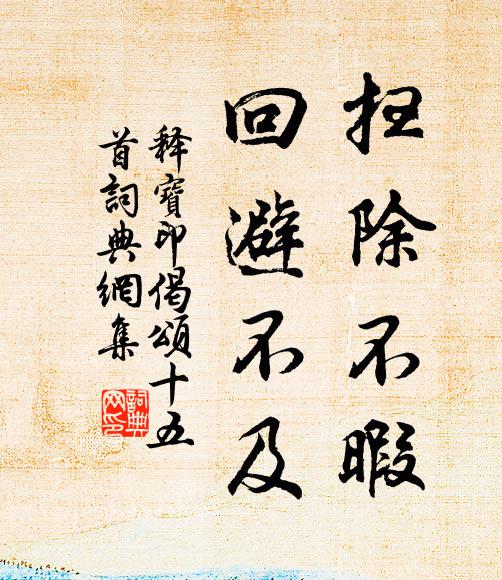 扫除不暇
回避不及
释寶印偈頌十五
首詞典網集
詞典
网印